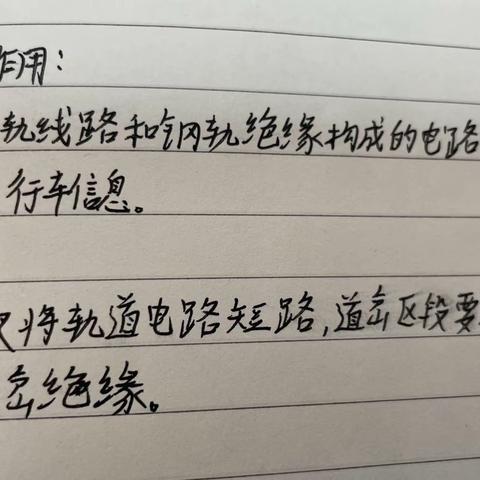 作用：
轨线路和钢轨绝缘构成的电路
行车信息。
将轨道电路短路，道岔区段要
岔绝缘。